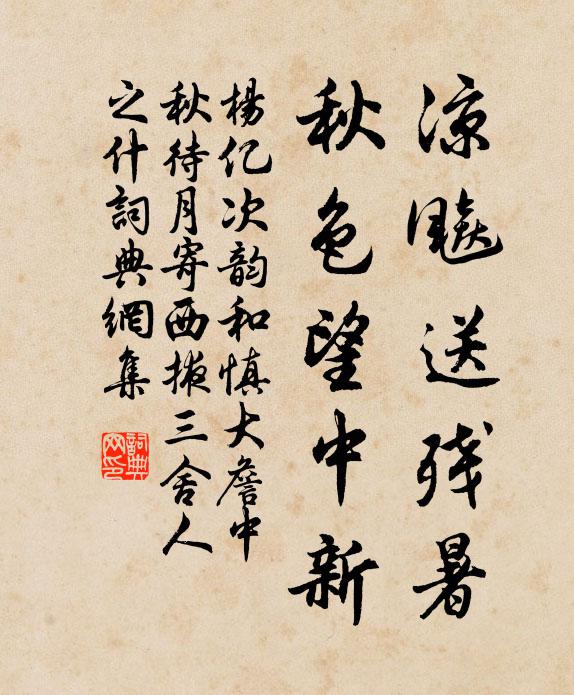 凉飈送残暑
秋色望中新
杨亿次韵和慎大詹中
秋待月寄西掖三舍人
之什詞典網集
詞典
网印